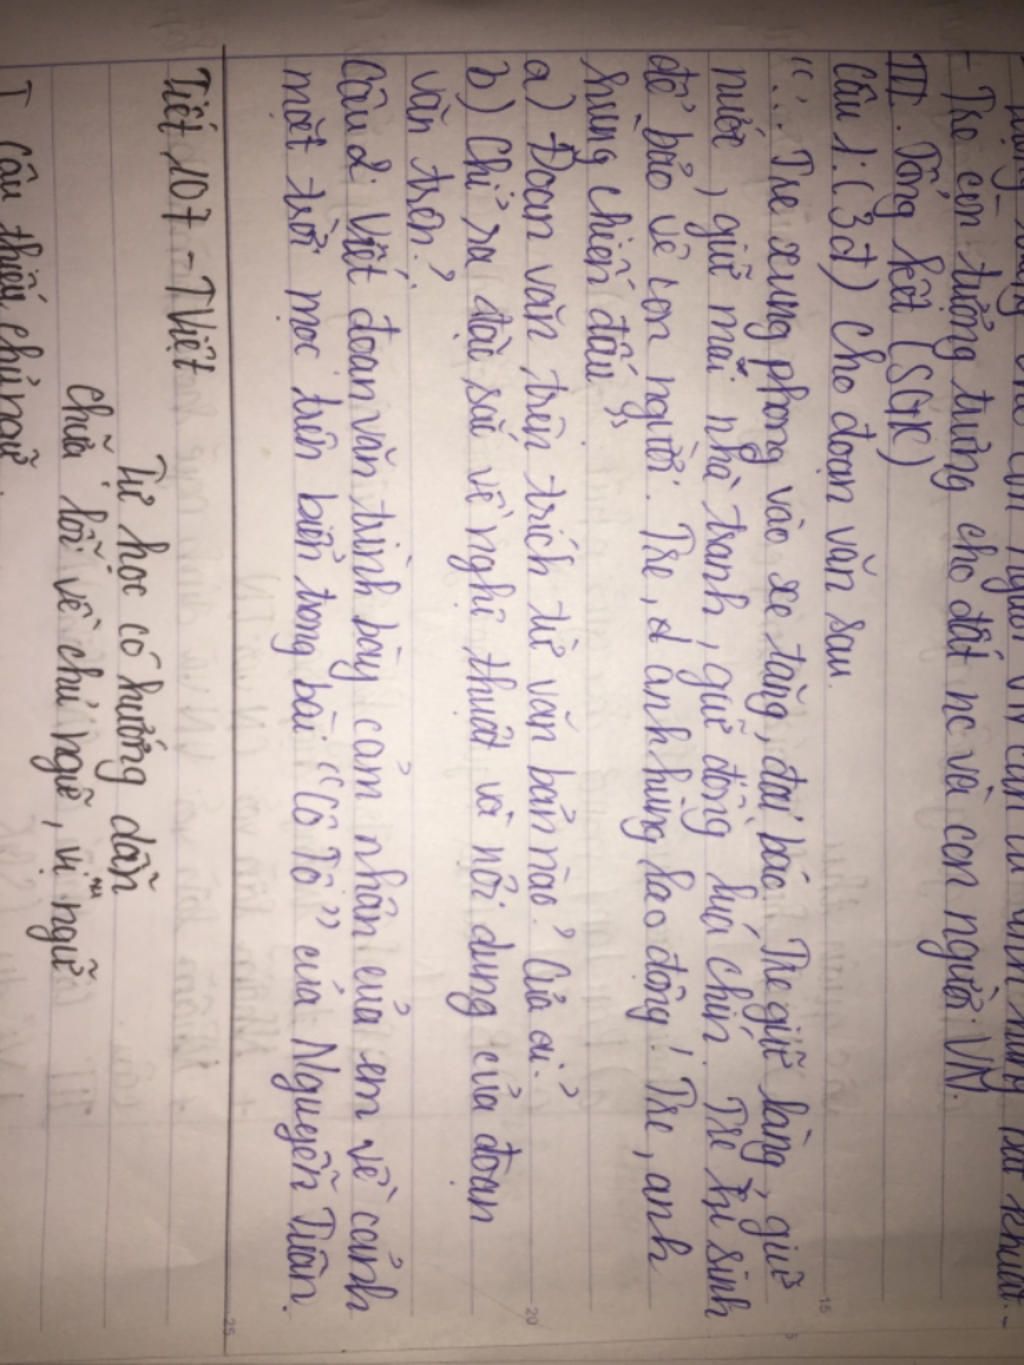 - Tre còn tượng trưng cho đất nc và con người VN.
III. Tổng kết (SGK)
Câu 1: (3đ) Cho đoạn văn sau.
"... Tre xung phong vào xe tăng, đại bác. Tre giữ làng, giữ
nước, giữ mái nhà tranh, giữ đồng lúa chín. Tre hi sinh
để bảo vệ con người. Tre, anh hùng lao động! Tre, anh
hùng chiến đấu"
a) Đoạn văn trên trích từ văn bản nào? Của ai?
b) Chỉ ra đặc sắc về nghệ thuật và nội dung của đoạn
văn trên?
Câu 2: Viết đoạn văn trình bày cảm nhận của em về cảnh
mặt trời mọc trên biển trong bài "Cô Tô" của Nguyễn Tuân.
Tiết 107 - TViệt
Tự học có hướng dẫn
Chữa lỗi về chủ ngữ, vị ngữ
I Câu thiếu chủ ngữ.